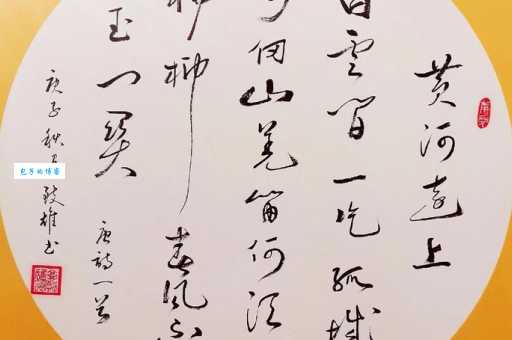 黄河远上
白雲间一片孤城
万仞山羌笛何须
杨柳春风不
玉门关
唐诗一首
庚子秋
致雄书
包子的博客